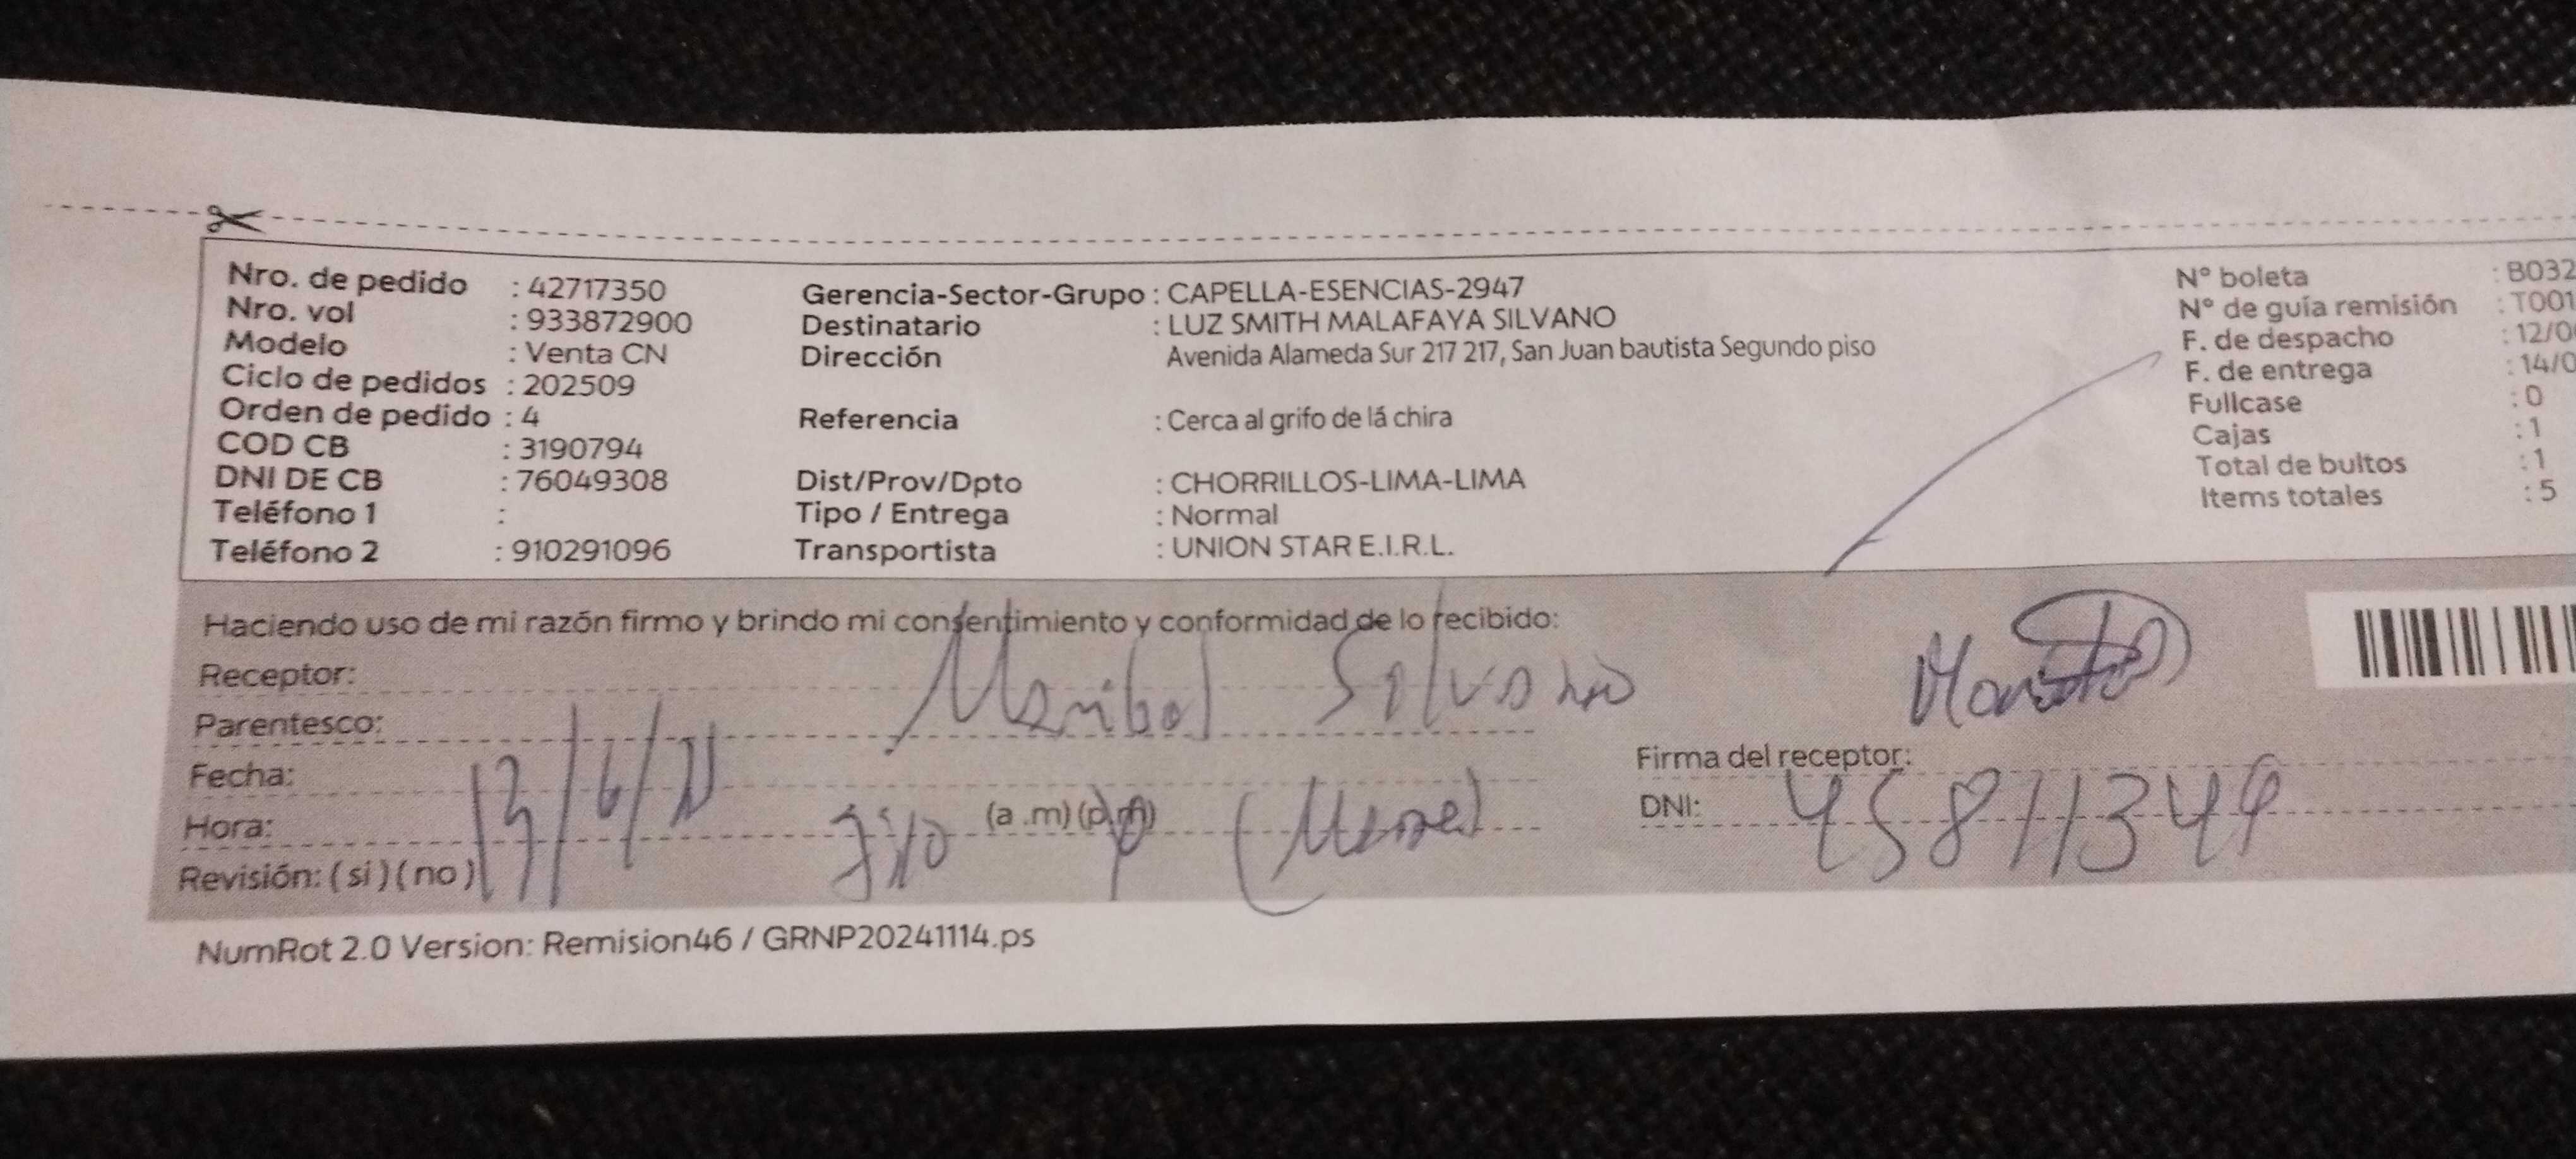 Nro. de pedido : 42717350
Nro. vol : 933872900
Modelo : Venta CN
Ciclo de pedidos : 202509
Orden de pedido : 4
COD CB : 3190794
DNI DE CB : 76049308
Teléfono 1 :
Teléfono 2 : 910291096
Gerencia-Sector-Grupo : CAPELLA-ESENCIAS-2947
Destinatario : LUZ SMITH MALAFAYA SILVANO
Dirección Avenida Alameda Sur 217 217, San Juan bautista Segundo piso
Referencia : Cerca al grifo de lá chira
Dist/Prov/Dpto : CHORRILLOS-LIMA-LIMA
Tipo / Entrega : Normal
Transportista : UNION STAR E.I.R.L.
Nº boleta : B032
Nº de guía remisión : T001
F. de despacho : 12/0
F. de entrega : 14/0
Fullcase : 0
Cajas : 1
Total de bultos : 1
Items totales : 5
Haciendo uso de mi razón firmo y brindo mi consentimiento y conformidad de lo recibido:
Receptor:
Parentesco: Silvano
Fecha:
Hora: (a .m) (p.m)
Revisión: ( si ) ( no )
Firma del receptor:
DNI: 45811349
NumRot 2.0 Version: Remision46 / GRNP20241114.ps